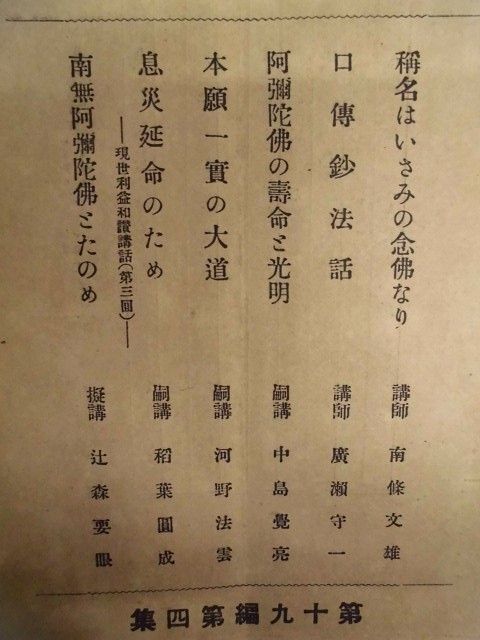 稱名はいさみの念佛なり 講師 南條文雄
口傳鈔法話 講師 廣瀬守一
阿彌陀佛の壽命と光明 嗣講 中島覺亮
本願一實の大道 嗣講 河野法雲
息災延命のため 嗣講 稻葉圓成
――現世利益和讚講話(第三回)――
南無阿彌陀佛とたのめ 擬講 辻森要眼
第十九編第四集